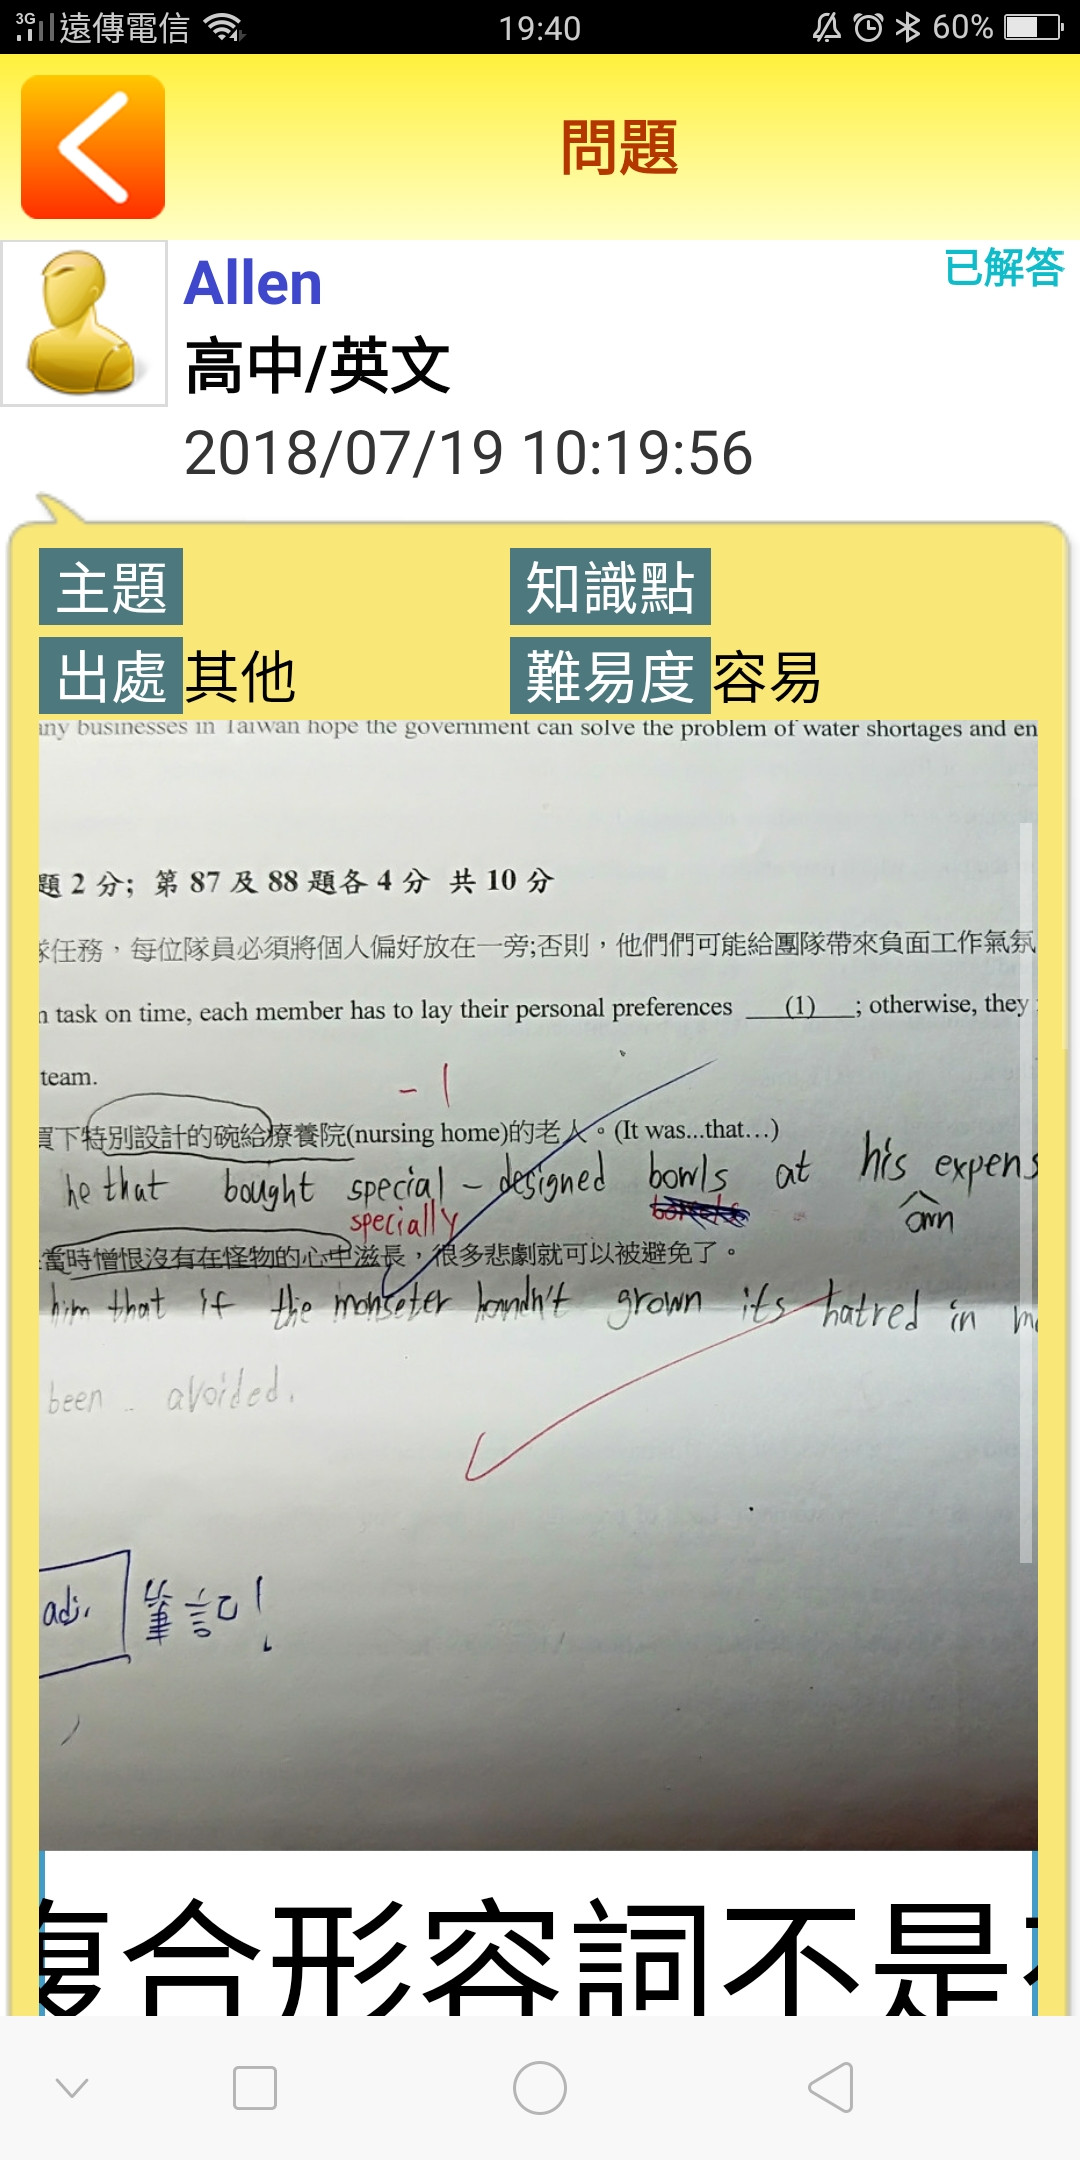 3G 遠傳電信 19:40 60%
問題
Allen 已解答
高中/英文
2018/07/19 10:19:56
主題 知識點
出處 其他 難易度 容易
any businesses in Taiwan hope the government can solve the problem of water shortages and en
題 2 分; 第 87 及 88 題各 4 分 共 10 分
任務，每位隊員必須將個人偏好放在一旁;否則，他們們可能給團隊帶來負面工作氣氛
n task on time, each member has to lay their personal preferences (1) ; otherwise, they
team.
-1
買下特別設計的碗給療養院(nursing home)的老人。(It was...that...)
he that bought special - designed bowls at his expens
specially own
當時憎恨沒有在怪物的心中滋長，很多悲劇就可以被避免了。
him that if the monseter handn't grown its hatred in
been avoided.
adj. 筆記!
複合形容詞不是